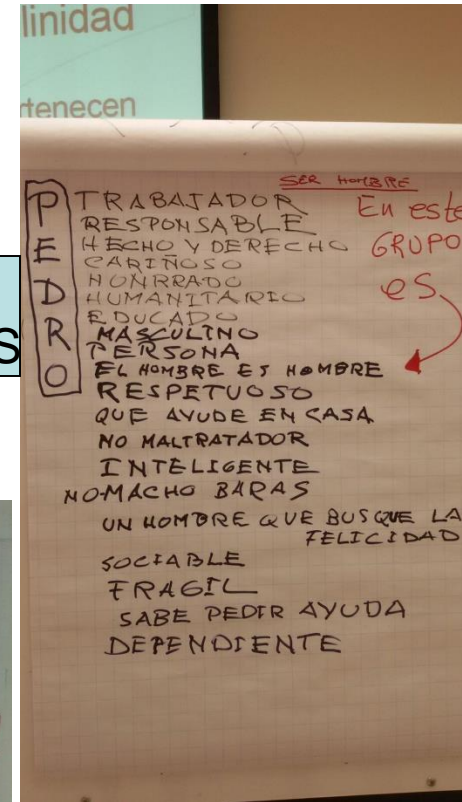 linidad
tenecen
S
SER HOMBRE
En este
GRUPO
es
PEDRO
TRABAJADOR
RESPONSABLE
HECHO Y DERECHO
CARIÑOSO
HONRRADO
HUMANITARIO
EDUCADO
MASCULINO
PERSONA
EL HOMBRE ES HOMBRE
RESPETUOSO
QUE AYUDE EN CASA
NO MALTRATADOR
INTELIGENTE
NO-MACHO BARAS
UN HOMBRE QUE BUSQUE LA
FELICIDAD
SOCIABLE
FRAGIL
SABE PEDIR AYUDA
DEPENDIENTE